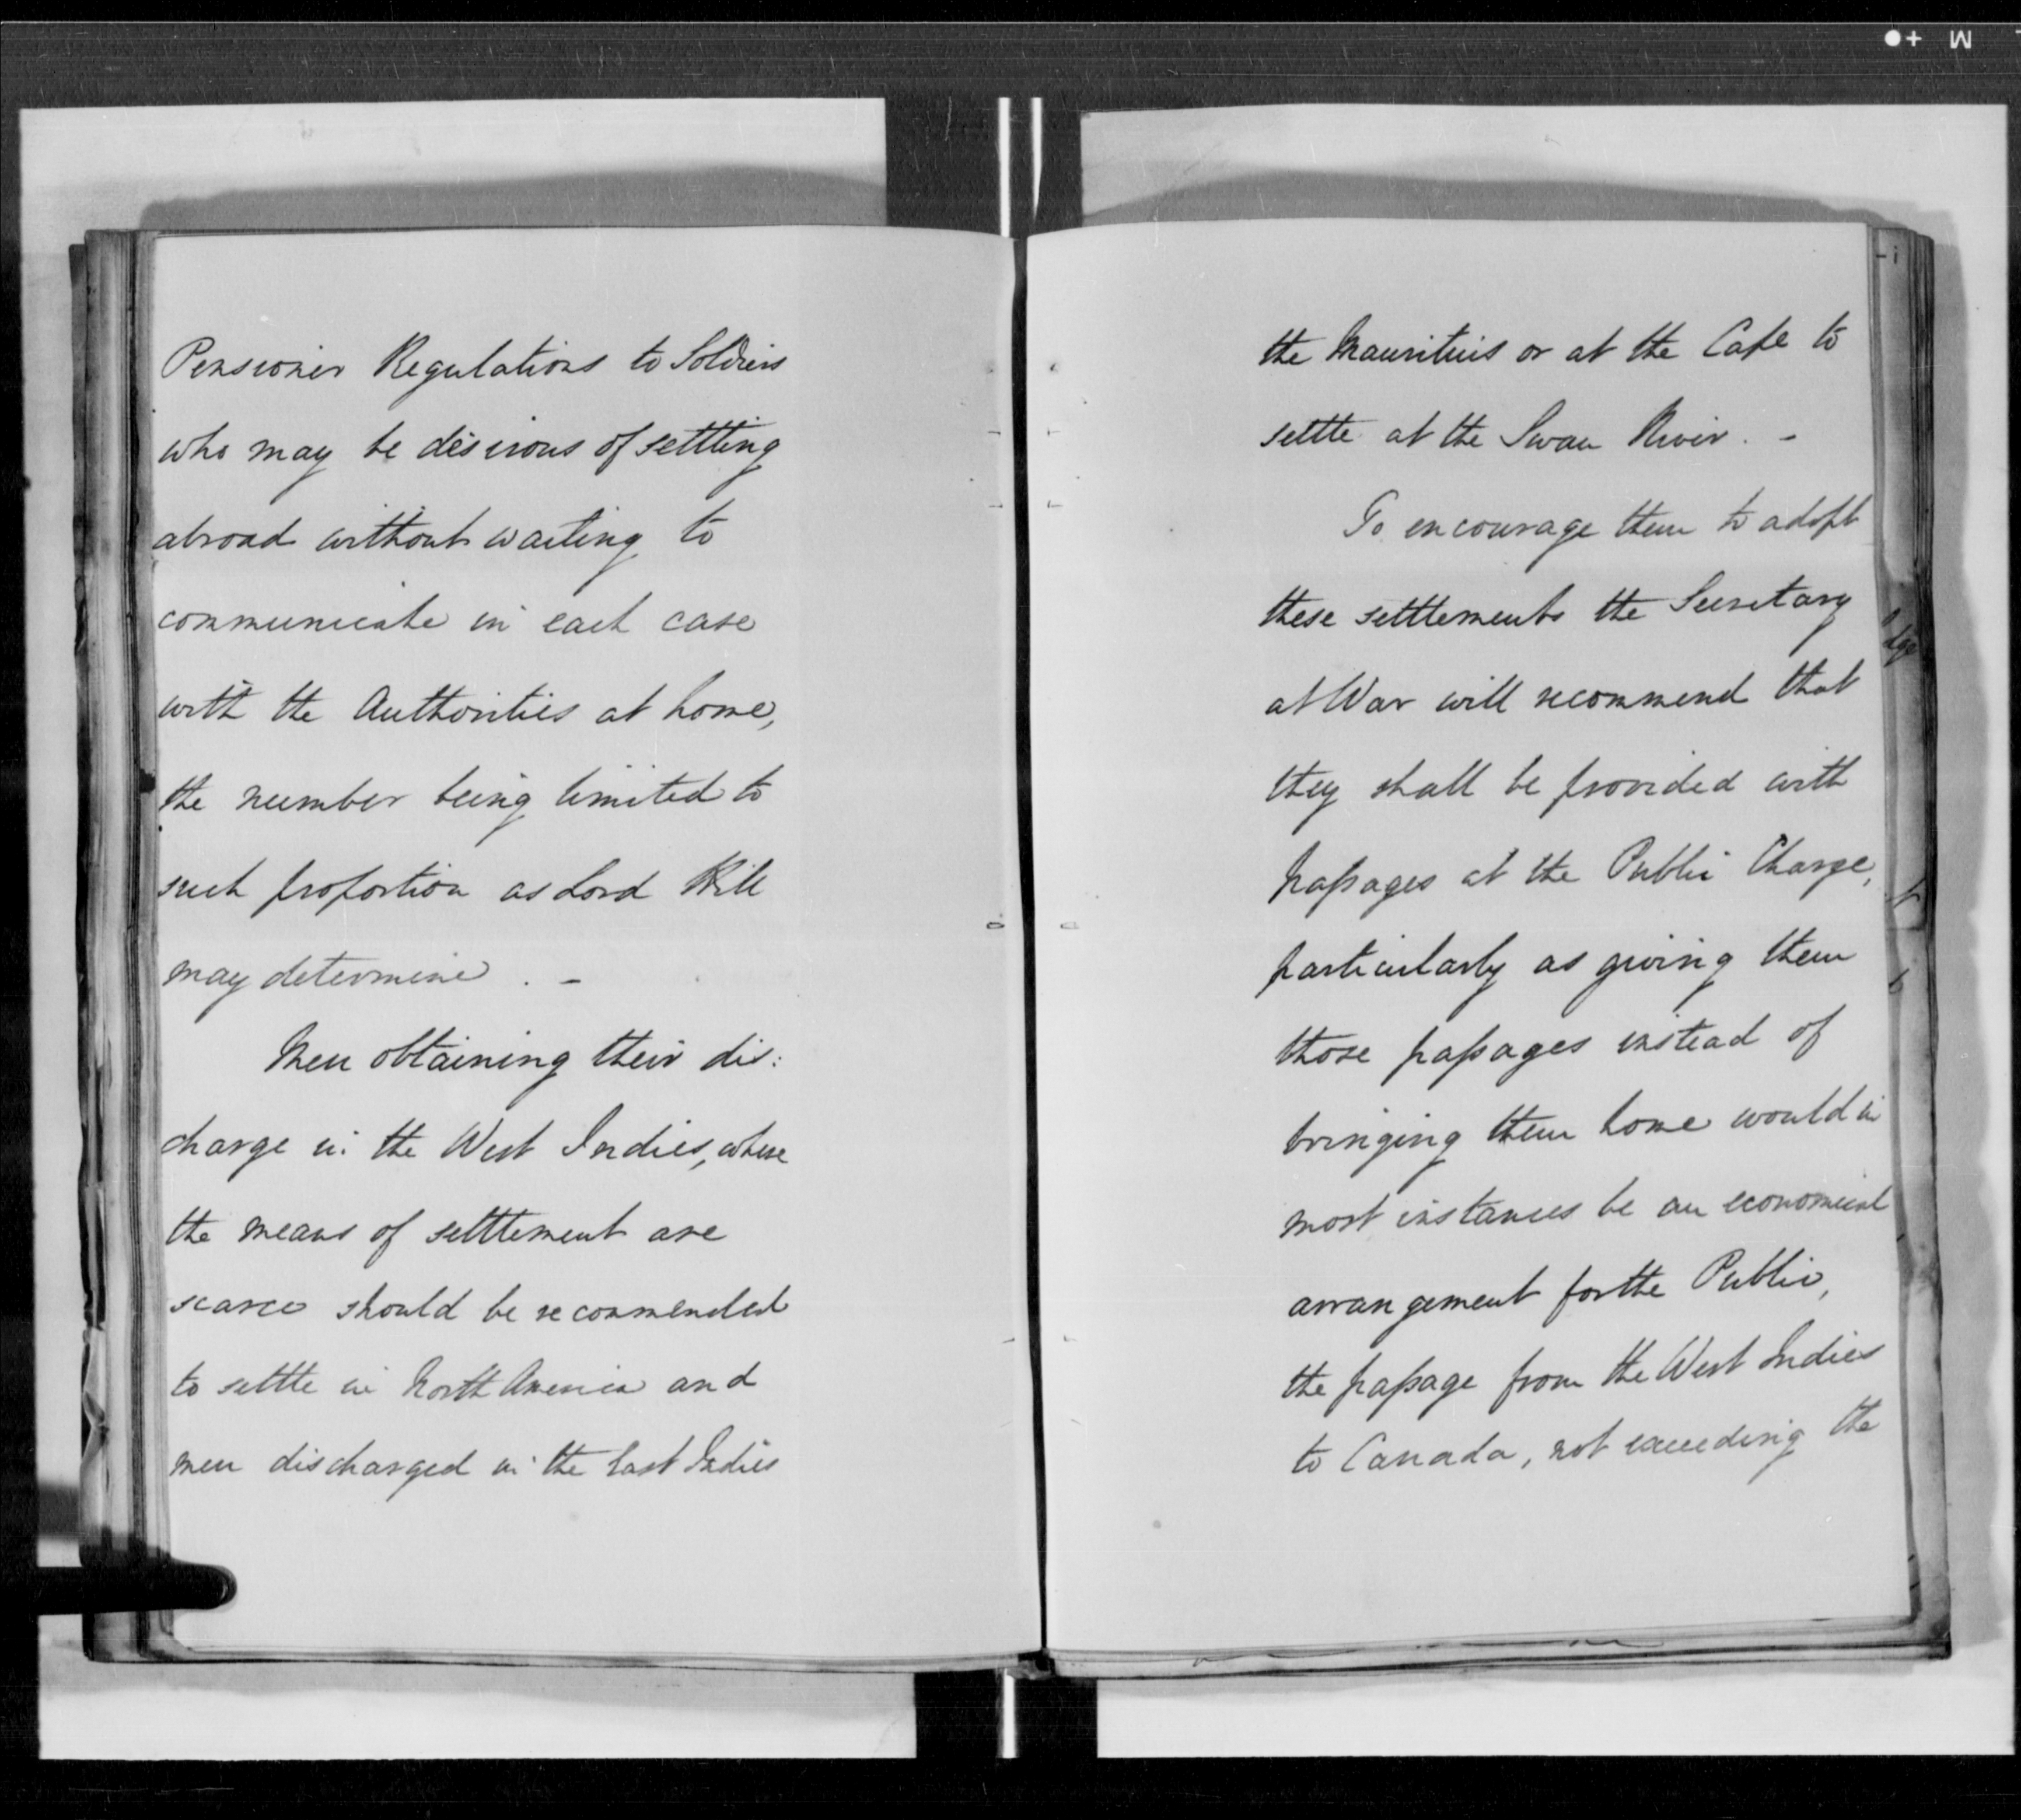 Pensioner Regulations to Soldiers
who may be desirous of settling
abroad without waiting to
communicate in each case
with the Authorities at home,
the number being limited to
such proportion as Lord Hill
may determine. -
Men obtaining their dis:
charge in the West Indies, where
the means of settlement are
scarce should be recommended
to settle in North America and
men discharged in the East Indies
the Mauritius or at the Cape to
settle at the Swan River. -
To encourage them to adopt
these settlements the Secretary
at War will recommend that
they shall be provided with
passages at the Public Charge,
particularly as giving them
those passages instead of
bringing them home would in
most instances be an economical
arrangement for the Public,
the passage from the West Indies
to Canada, not exceeding the